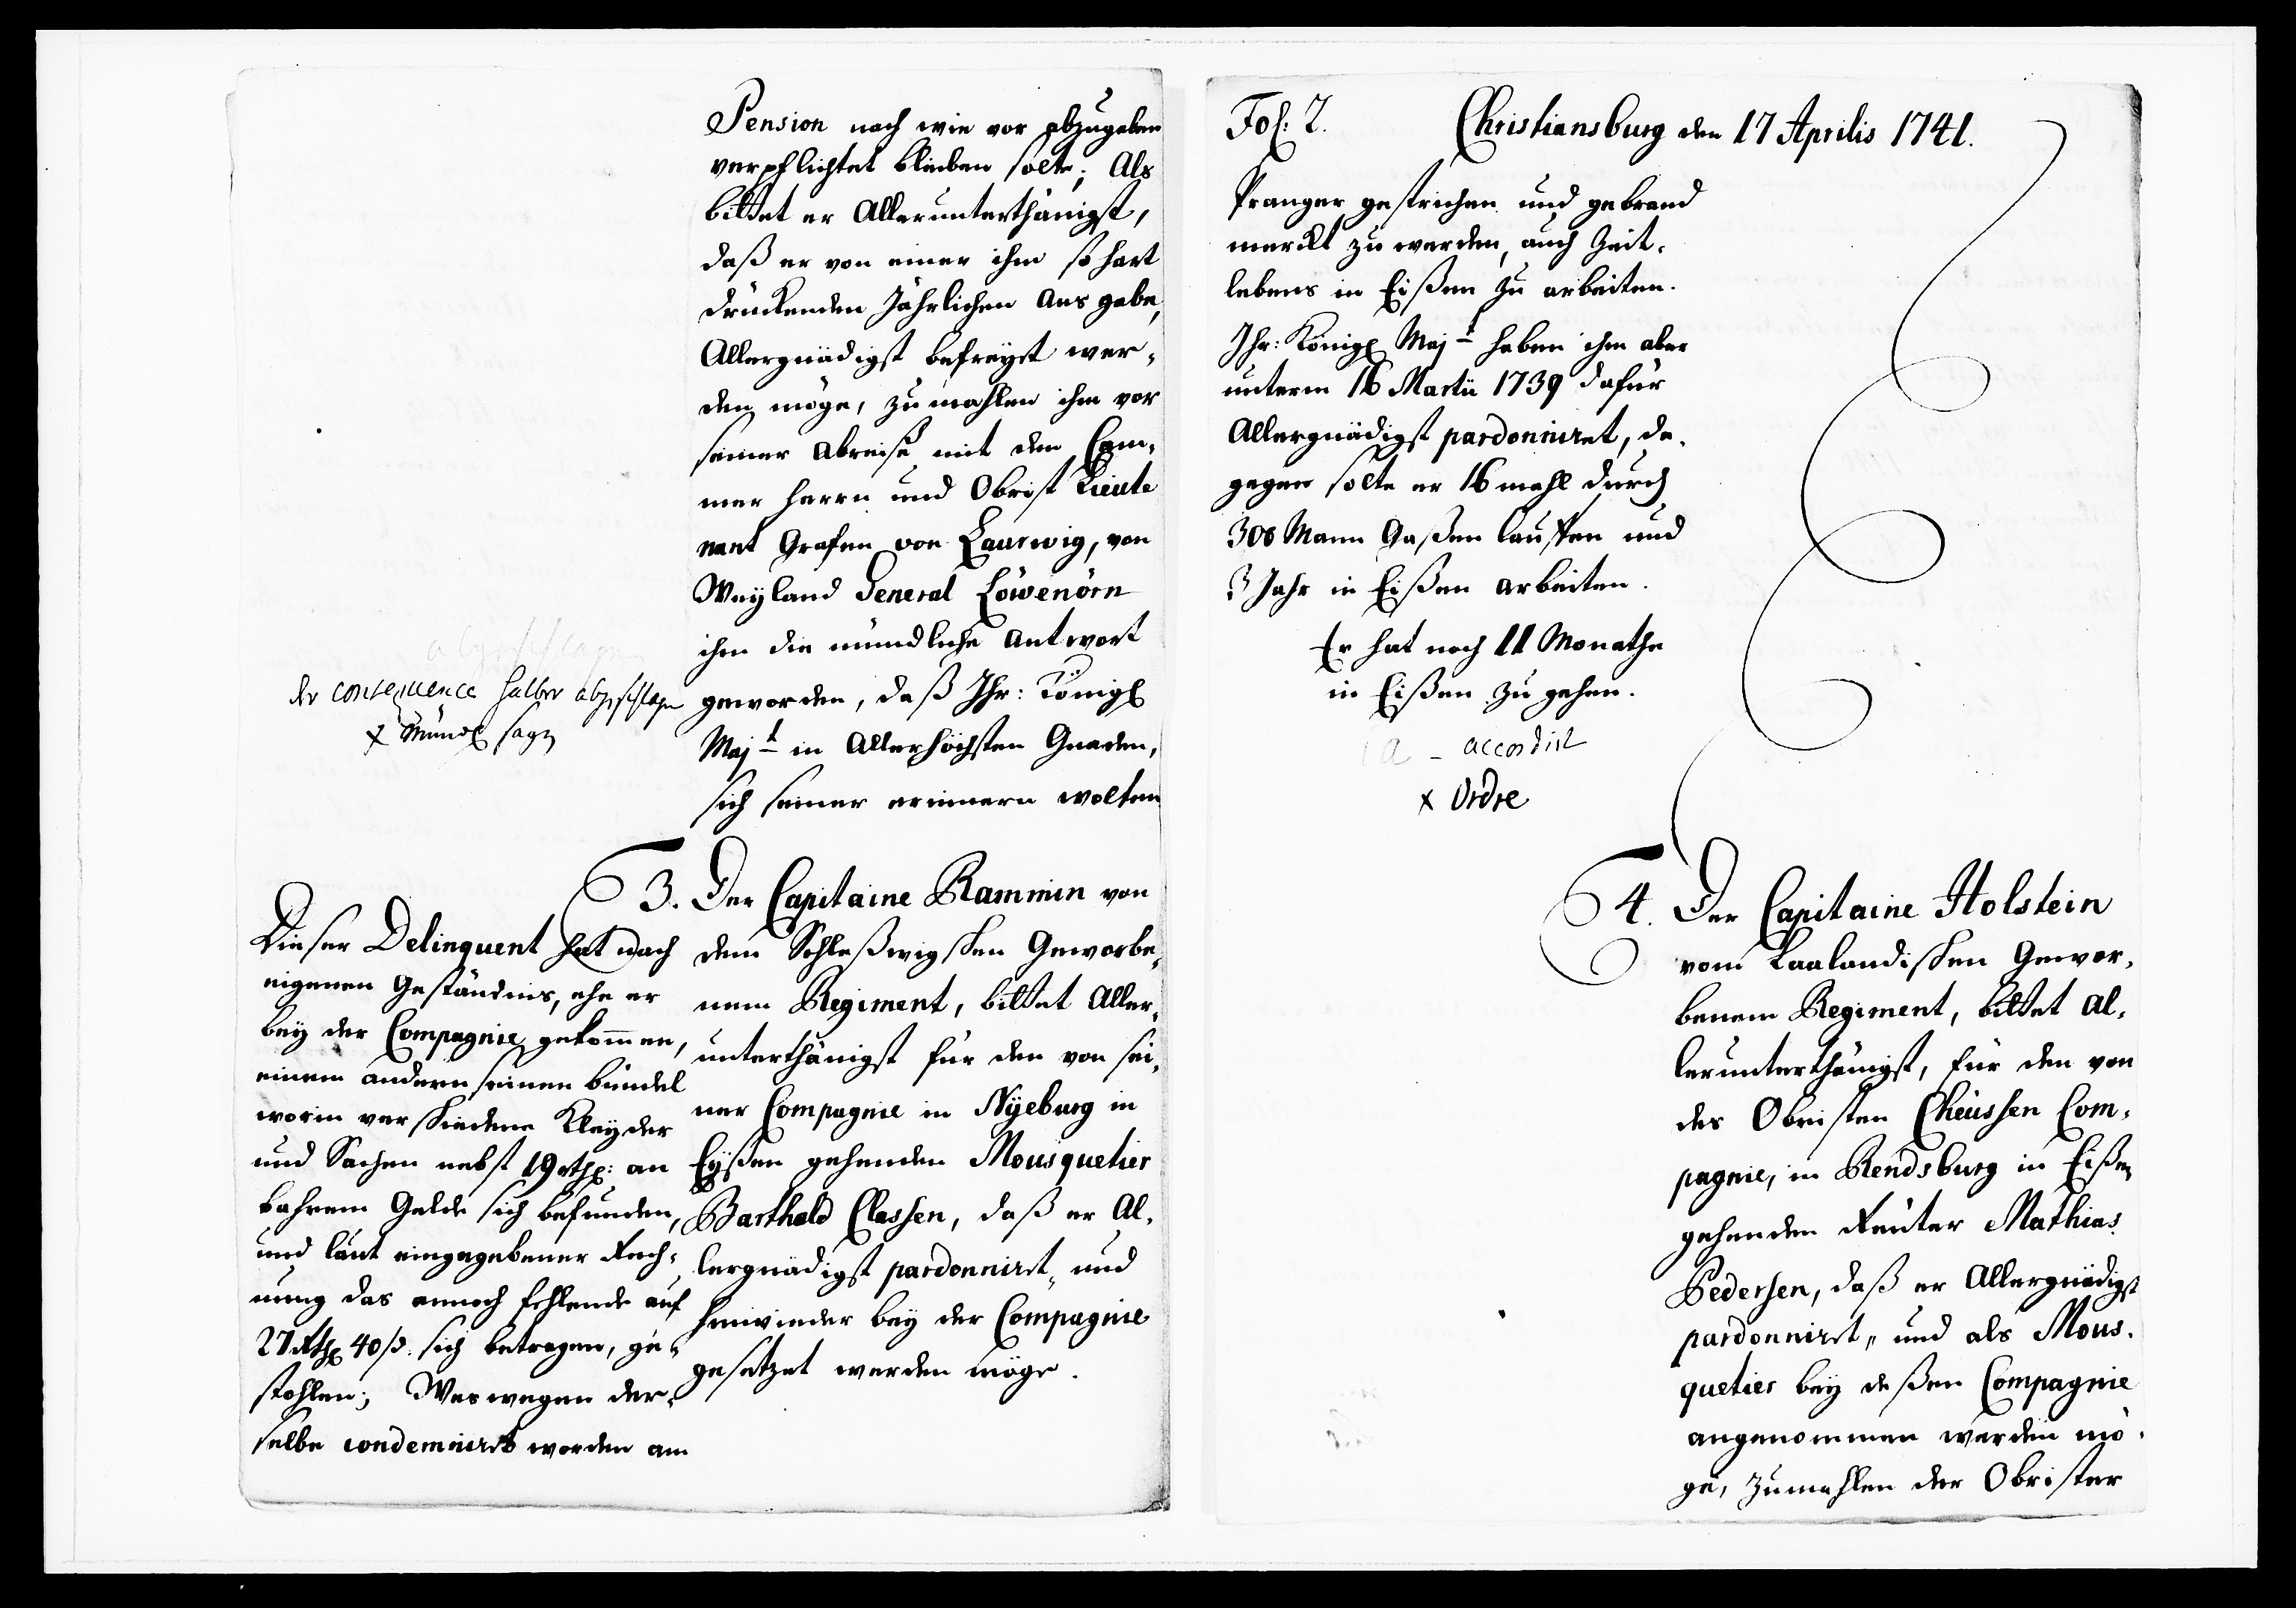 Pension nach wie vor abzugeben
verpflichtet bleiben solte; Als
bittet er Allerunterthänigst,
daß er von einer ihm so hart
drückenden Jährlichen Ausgabe,
Allergnädigst befreyet wer-
den möge, zumahlen ihm vor
seiner Abreise mit dem Cam-
mer Herrn und Obrist Lieute
nant Grafen von Laurwig, von
Weyland General Löwenörn
ihm die mündliche Antwort
geworden, daß Ihr: Königl
Majt in Allerhöchsten Gnaden,
sich seiner erinnern wolten
abgeschlagen
der consequence halber abgeschlagen
x Mündl sagen
3. Der Capitaine Rammin von
dem Schleßwigschen Geworbe-
nem Regiment, bittet Aller-
unterthänigst für den von sei-
ner Compagnie in Nyeburg in
Eyßen gehenden Mousquetier
Barthold Classen, daß er Al-
lergnädigst pardonniret, und
hinwieder bey der Compagnie
gesetzet werden möge.
Dieser Delinquent hat nach
eigenen Geständnis, ehe er
bey der Compagnie gekom̄en,
einem andern seinen bündel
worin verschiedene Kleyder
und Sachen nebst 19 rthl: an
bahrem Gelde sich befunden,
und laut eingegebener Rech-
nung das annoch fehlende auf
27 Rthl 40 ß. sich betragen, ge-
stohlen; Weswegen der-
selbe condemniret worden am
Fol: 2. Christiansburg den 17 Aprilis 1741.
Pranger gestrichen und gebrand
marckt zu werden, auch Zeit-
lebens in Eißen zu arbeiten.
Ihr: Königl Majt haben ihm aber
unterm 16 Martii 1739 dafür
Allergnädigst pardonniret, da-
gegen solte er 16 mahl durch
300 Mann Gaßen lauffen und
3 Jahr in Eißen arbeiten.
Er hat noch 11 Monathe
in Eißen zu gehen.
a - accordirt
x Ordre
4. Der Capitaine Holstein
vom Laalandischen Gewor-
benem Regiment, bittet Al-
lerunterthänigst, für den von
des Obristen Cheüssen Com-
pagnie, in Rendsburg in Eißen
gehenden Reuter Mathias
Pedersen, daß er Allergnädigst
pardonniret, und als Mous-
quetier bey deßen Compagnie
angenommen werden mö-
ge, zumahlen der Obrister